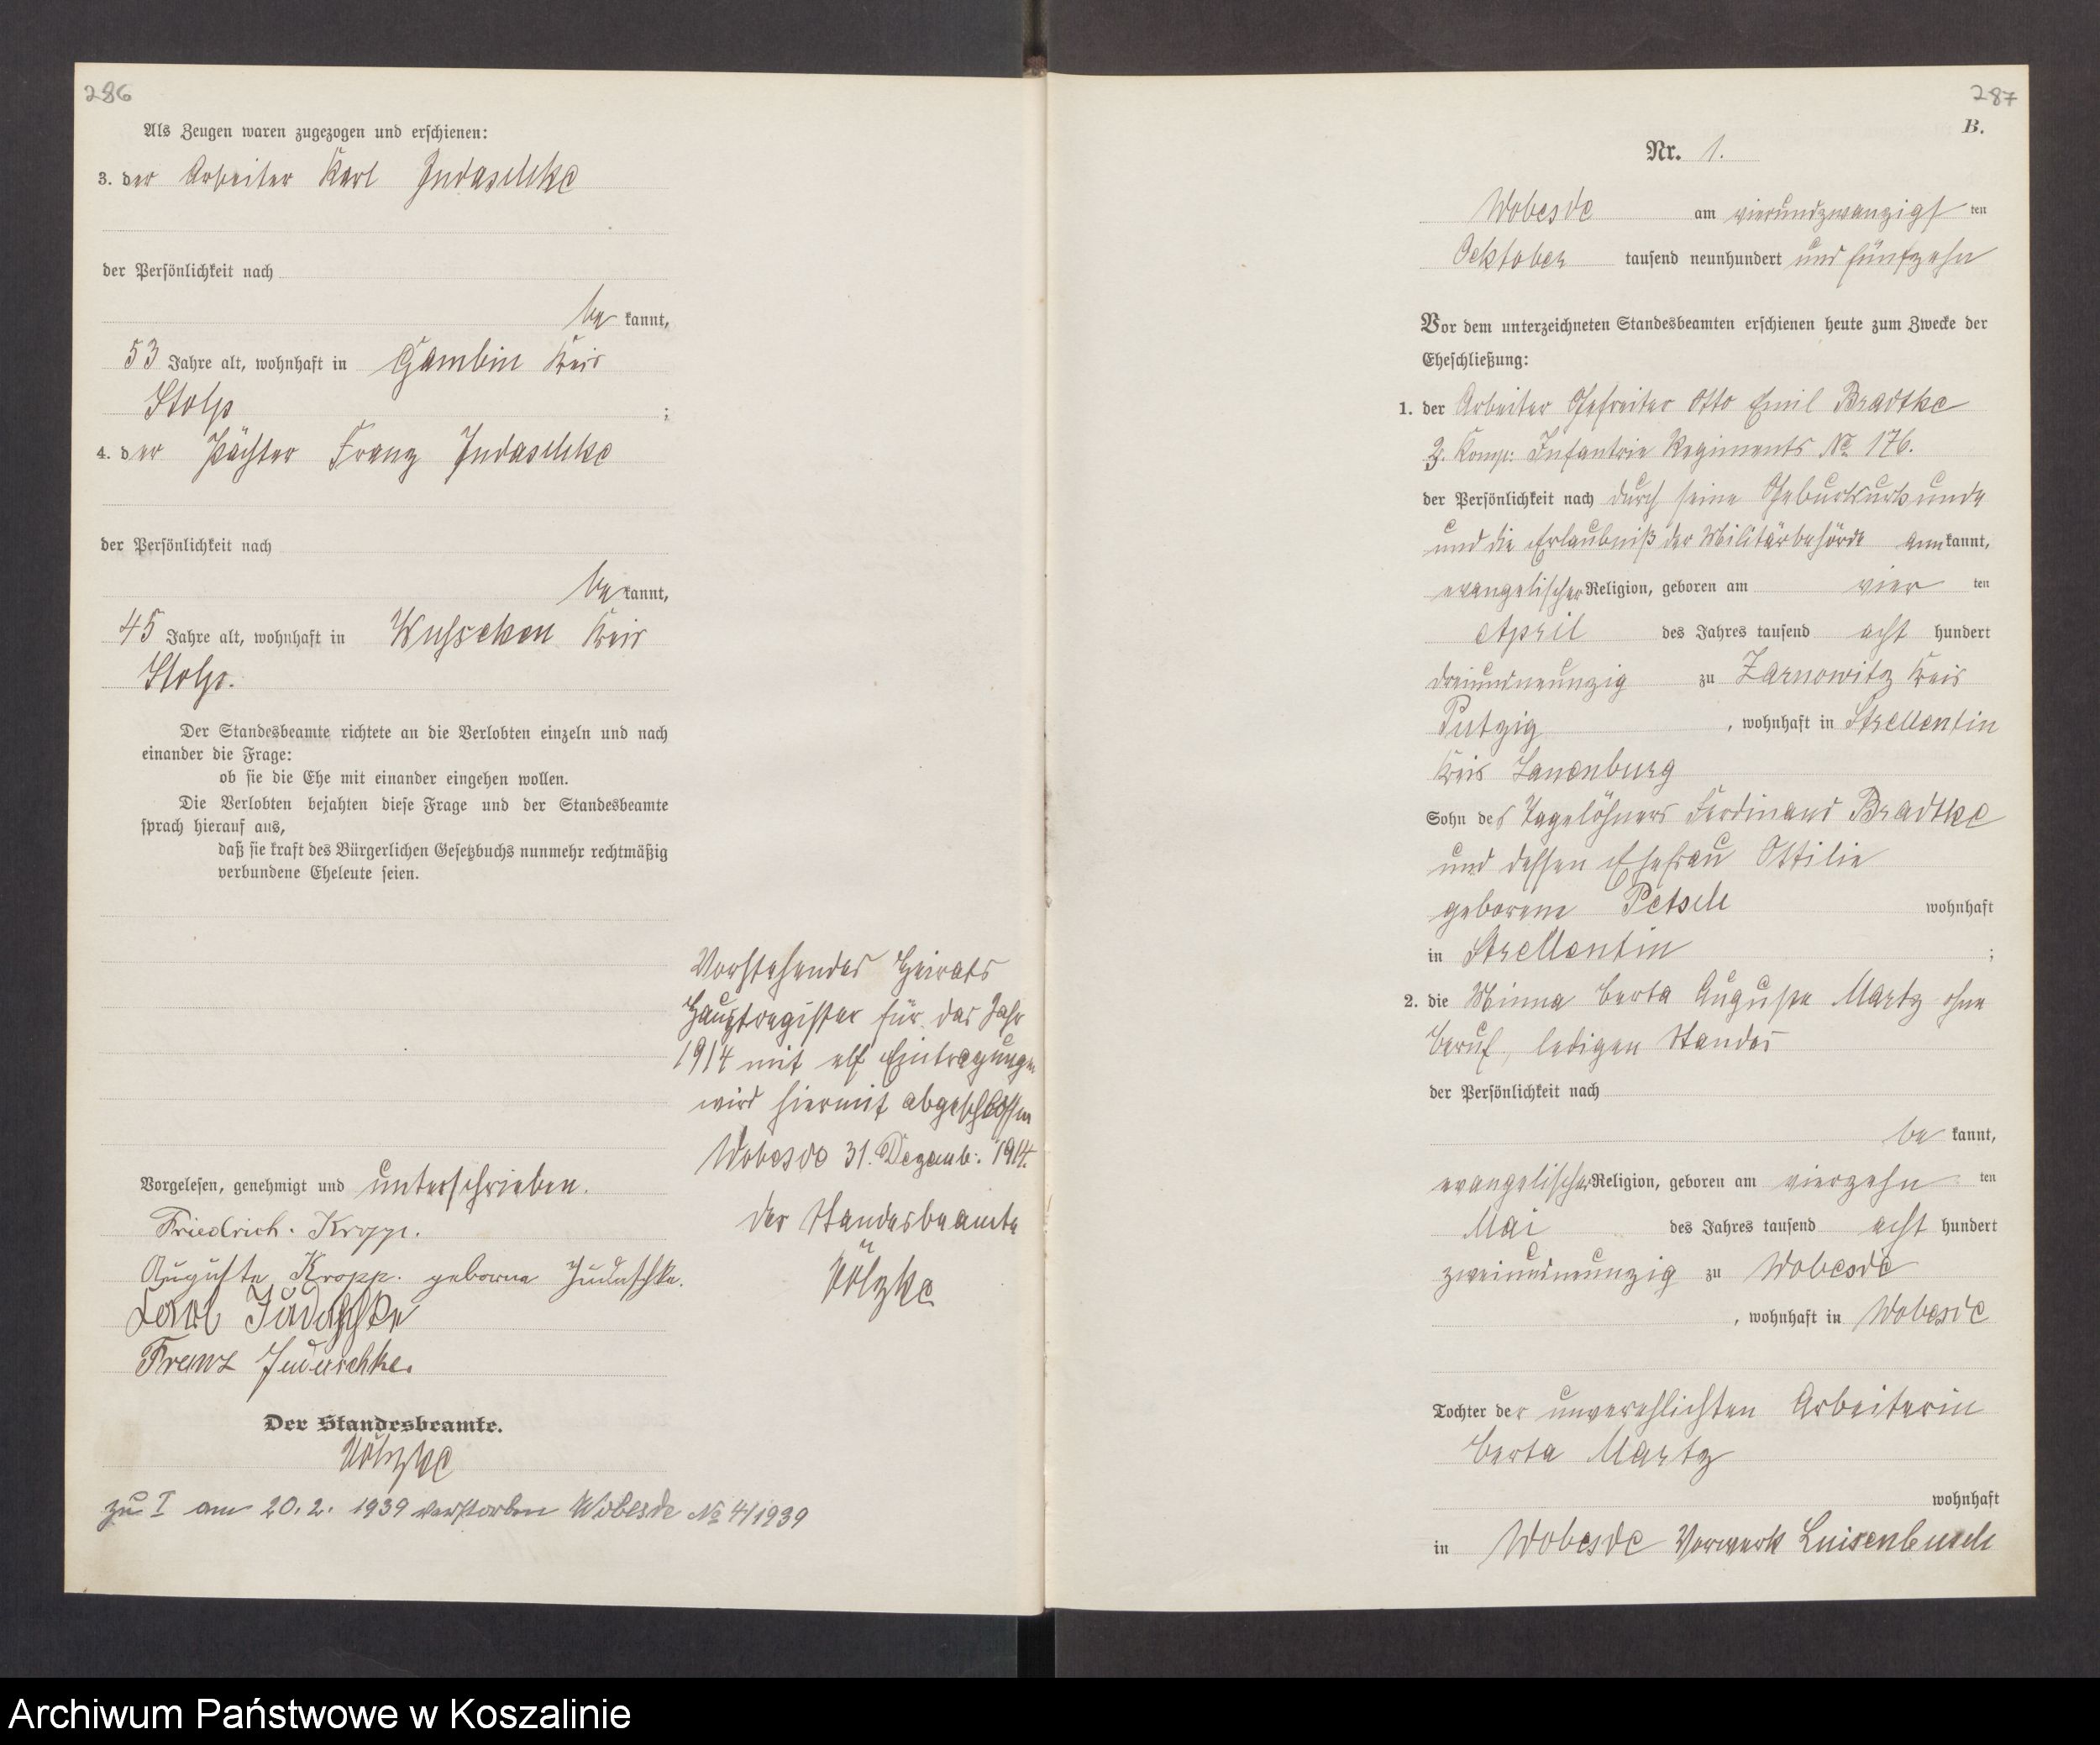 286
Als Zeugen waren zugezogen und erschienen:
3. der Arbeiter Karl Judaschke
der Persönlichkeit nach
be kannt,
53 Jahre alt, wohnhaft in Gambin Kreis
Stolp ;
4. der Pächter Franz Judaschke
der Persönlichkeit nach
be kannt,
45 Jahre alt, wohnhaft in Wusseken Kreis
Stolp.
Der Standesbeamte richtete an die Verlobten einzeln und nach
einander die Frage:
ob sie die Ehe mit einander eingehen wollen.
Die Verlobten bejahten diese Frage und der Standesbeamte
sprach hierauf aus,
daß sie kraft des Bürgerlichen Gesetzbuchs nunmehr rechtmäßig
verbundene Eheleute seien.
Vorgelesen, genehmigt und unterschrieben.
Friedrich. Kropp.
Auguste Kropp. geborne Judaschke.
Karl Judaschke
Franz Judaschke.
Der Standesbeamte.
Völzke
zu I am 20. 2. 1939 verstorben Wobesde № 4/1939
Vorstehendes Heirats
Hauptregister für das Jahr
1914 mit elf Eintragungen
wird hiermit abgeschlossen
Wobesde 31. Dezemb. 1914.
Der Standesbeamte
Völzke
287
B.
Nr. 1.
Wobesde am vierundzwanzigst ten
Ocktober tausend neunhundert und fünfzehn
Vor dem unterzeichneten Standesbeamten erschienen heute zum Zwecke der
Eheschließung:
1. der Arbeiter Gefreiter Otto Emil Bradtke
Komp: Infantrie Regiments № 176.
der Persönlichkeit nach durch seine Geburtsurkunde
und die Erlaubniß der Militärbehörde aner kannt,
evangelischer Religion, geboren am vier ten
April des Jahres tausend acht hundert
dreiundneunzig zu Zarnowitz Kreis
Putzig , wohnhaft in Strellentin
Kreis Lauenburg
Sohn des Tagelöhners Ferdinand Bradtke
und dessen Ehefrau Ottilie
geborene Petsch wohnhaft
in Strellentin ;
2. die Minna Berta Auguste Martz ohne
Beruf, ledigen Standes
der Persönlichkeit nach
be kannt,
evangelischer Religion, geboren am vierzehn ten
Mai des Jahres tausend acht hundert
zweiundneunzig zu Wobesde
, wohnhaft in Wobesde
Tochter der unverehlichten Arbeiterin
Berta Martz
wohnhaft
in Wobesde Vorwerk Luisenbusch
Archiwum Państwowe w Koszalinie